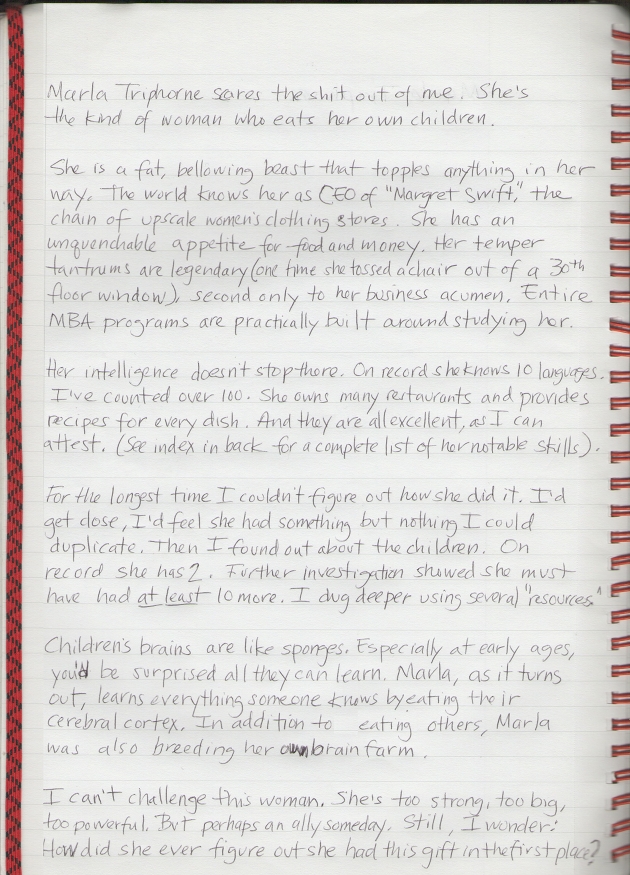 Marla Triphorne scares the shit out of me. She's
the kind of woman who eats her own children.
She is a fat, bellowing beast that topples anything in her
way. The world knows her as CEO of "Margret Swift," the
chain of upscale women's clothing stores. She has an
unquenchable appetite for food and money. Her temper
tantrums are legendary (one time she tossed a chair out of a 30th
floor window), second only to her business acumen. Entire
MBA programs are practically built around studying her.
Her intelligence doesn't stop there. On record she knows 10 languages.
I've counted over 100. She owns many restaurants and provides
recipes for every dish. And they are all excellent, as I can
attest. (See index in back for a complete list of her notable skills).
For the longest time I couldn't figure out how she did it. I'd
get close, I'd feel she had something but nothing I could
duplicate. Then I found out about the children. On
record she has 2. Further investigation showed she must
have had at least 10 more. I dug deeper using several "resources"
Children's brains are like sponges. Especially at early ages,
you'd be surprised all they can learn. Marla, as it turns
out, learns everything someone knows by eating their
cerebral cortex. In addition to eating others, Marla
was also breeding her own brain farm.
I can't challenge this woman. She's too strong, too big,
too powerful. But perhaps an ally someday. Still, I wonder:
How did she ever figure out she had this gift in the first place?